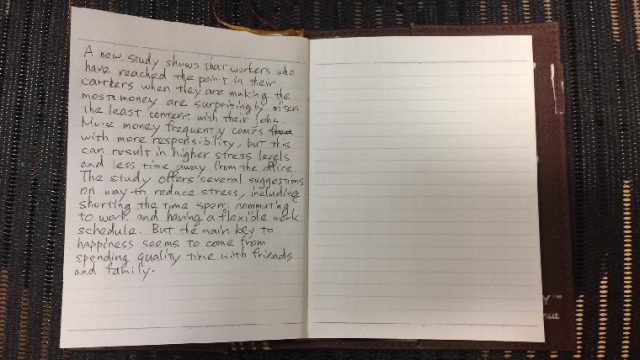 A now study shows that workers who
have reached the point in their
carrkers when they are making the
most money are surprisingly often
the least content with their jobs.
More money frequently comes
with more responsibility, but this
can result in higher stress levels
and less time away from the office.
The study offers several suggestions
on way to reduce stress, including
shorting the time spent commuting
to work and having a flexible work
schedule. But the main key to
happiness seems to come from
spending quality time with friends
and family.